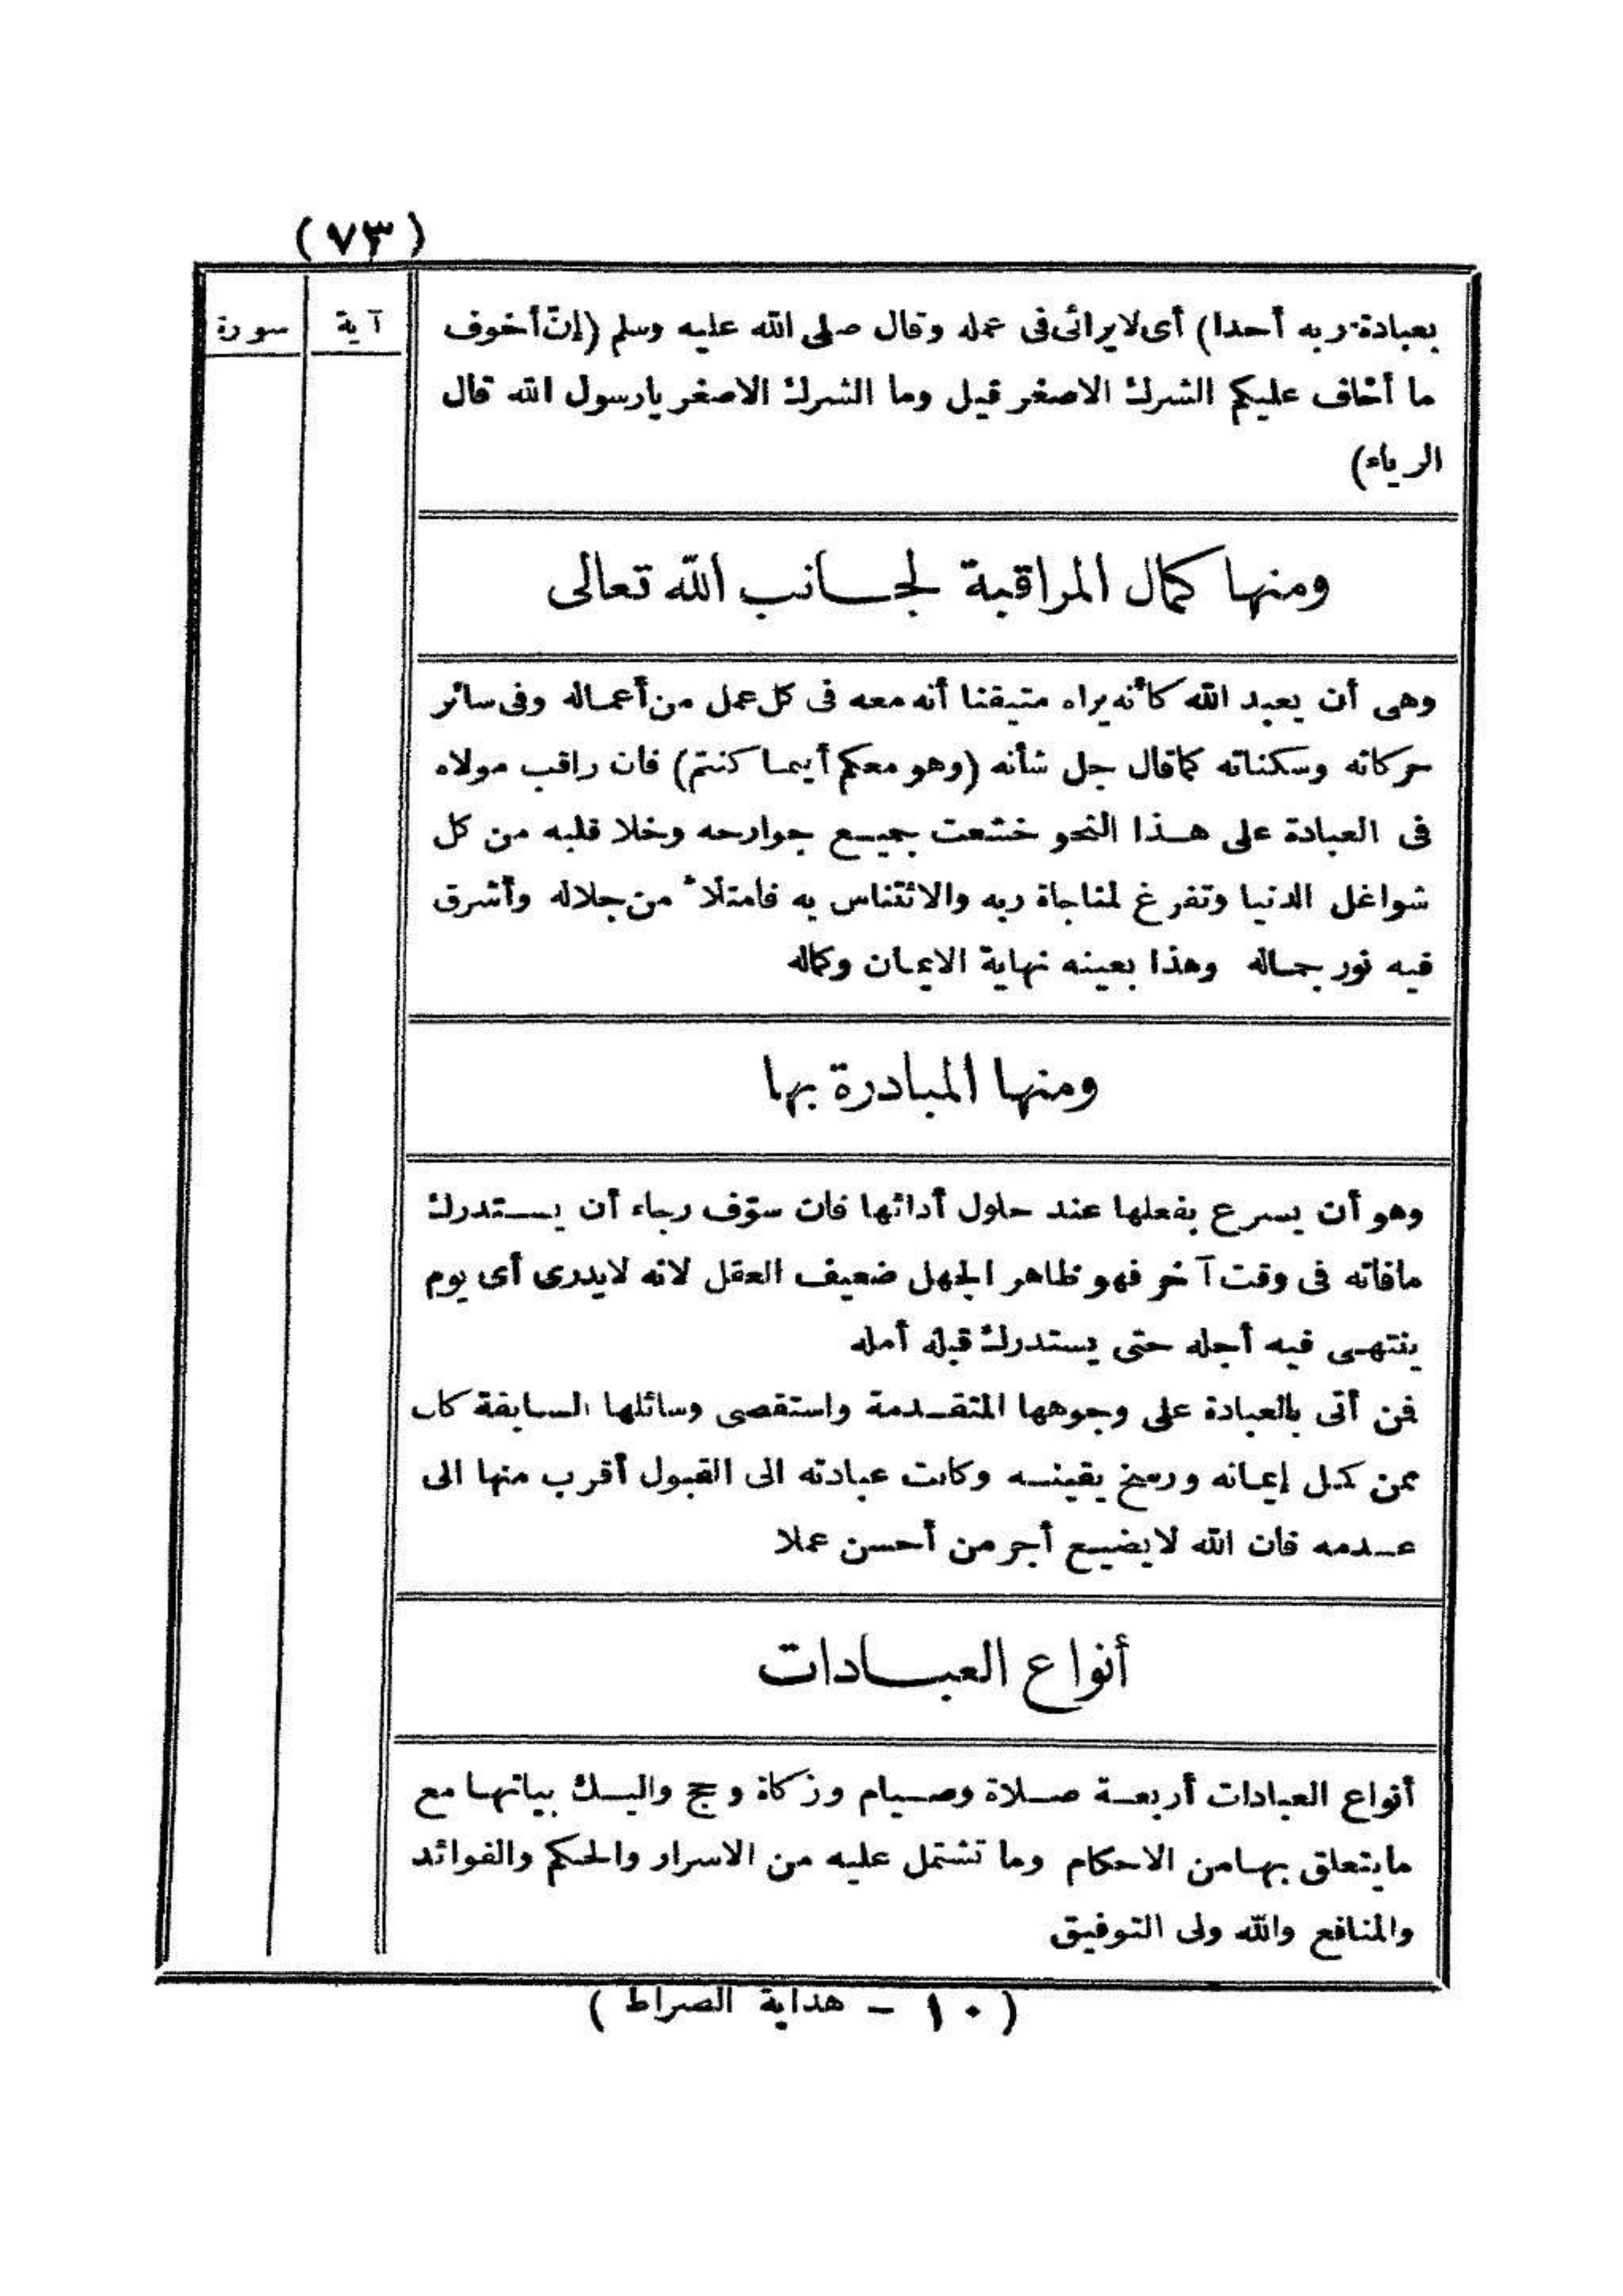 (٧٣)
آية
سورة
بعبادة ربه أحدا) أى لا يرائى فى عمله وقال صلى الله عليه وسلم (إنّ أخوف
ما أخاف عليكم الشرك الاصغر قيل وما الشرك الاصغر يارسول الله قال
الرياء)
ومنها كمال المراقبة لجانب الله تعالى
وهى أن يعبد الله كأنه يراه متيقنا أنه معه فى كل عمل من أعماله وفى سائر
حركاته وسكناته كما قال جل شأنه (وهو معكم أينما كنتم) فان راقب مولاه
فى العبادة على هذا النحو خشعت جميع جوارحه وخلا قلبه من كل
شواغل الدنيا وتفرغ لمناجاة ربه والائتناس به فامتلأ من جلاله وأشرق
فيه نور جماله وهذا بعينه نهاية الايمان وكماله
ومنها المبادرة بها
وهو أن يسرع بفعلها عند حلول أدائها فان سوّف رجاء أن يستدرك
مافاته فى وقت آخر فهو ظاهر الجهل ضعيف العقل لانه لايدرى أى يوم
ينتهى فيه أجله حتى يستدرك قبله أمله
فمن أتى بالعبادة على وجوهها المتقدمة واستقصى وسائلها السابقة كان
ممن كمل إيمانه ورسخ يقينه وكانت عبادته الى القبول أقرب منها الى
عدمه فان الله لايضيع أجر من أحسن عملا
أنواع العبادات
أنواع العبادات أربعة صلاة وصيام وزكاة وحج واليك بيانها مع
مايتعلق بها من الاحكام وما تشتمل عليه من الاسرار والحكم والفوائد
والمنافع والله ولى التوفيق
(١٠ - هداية الصراط)